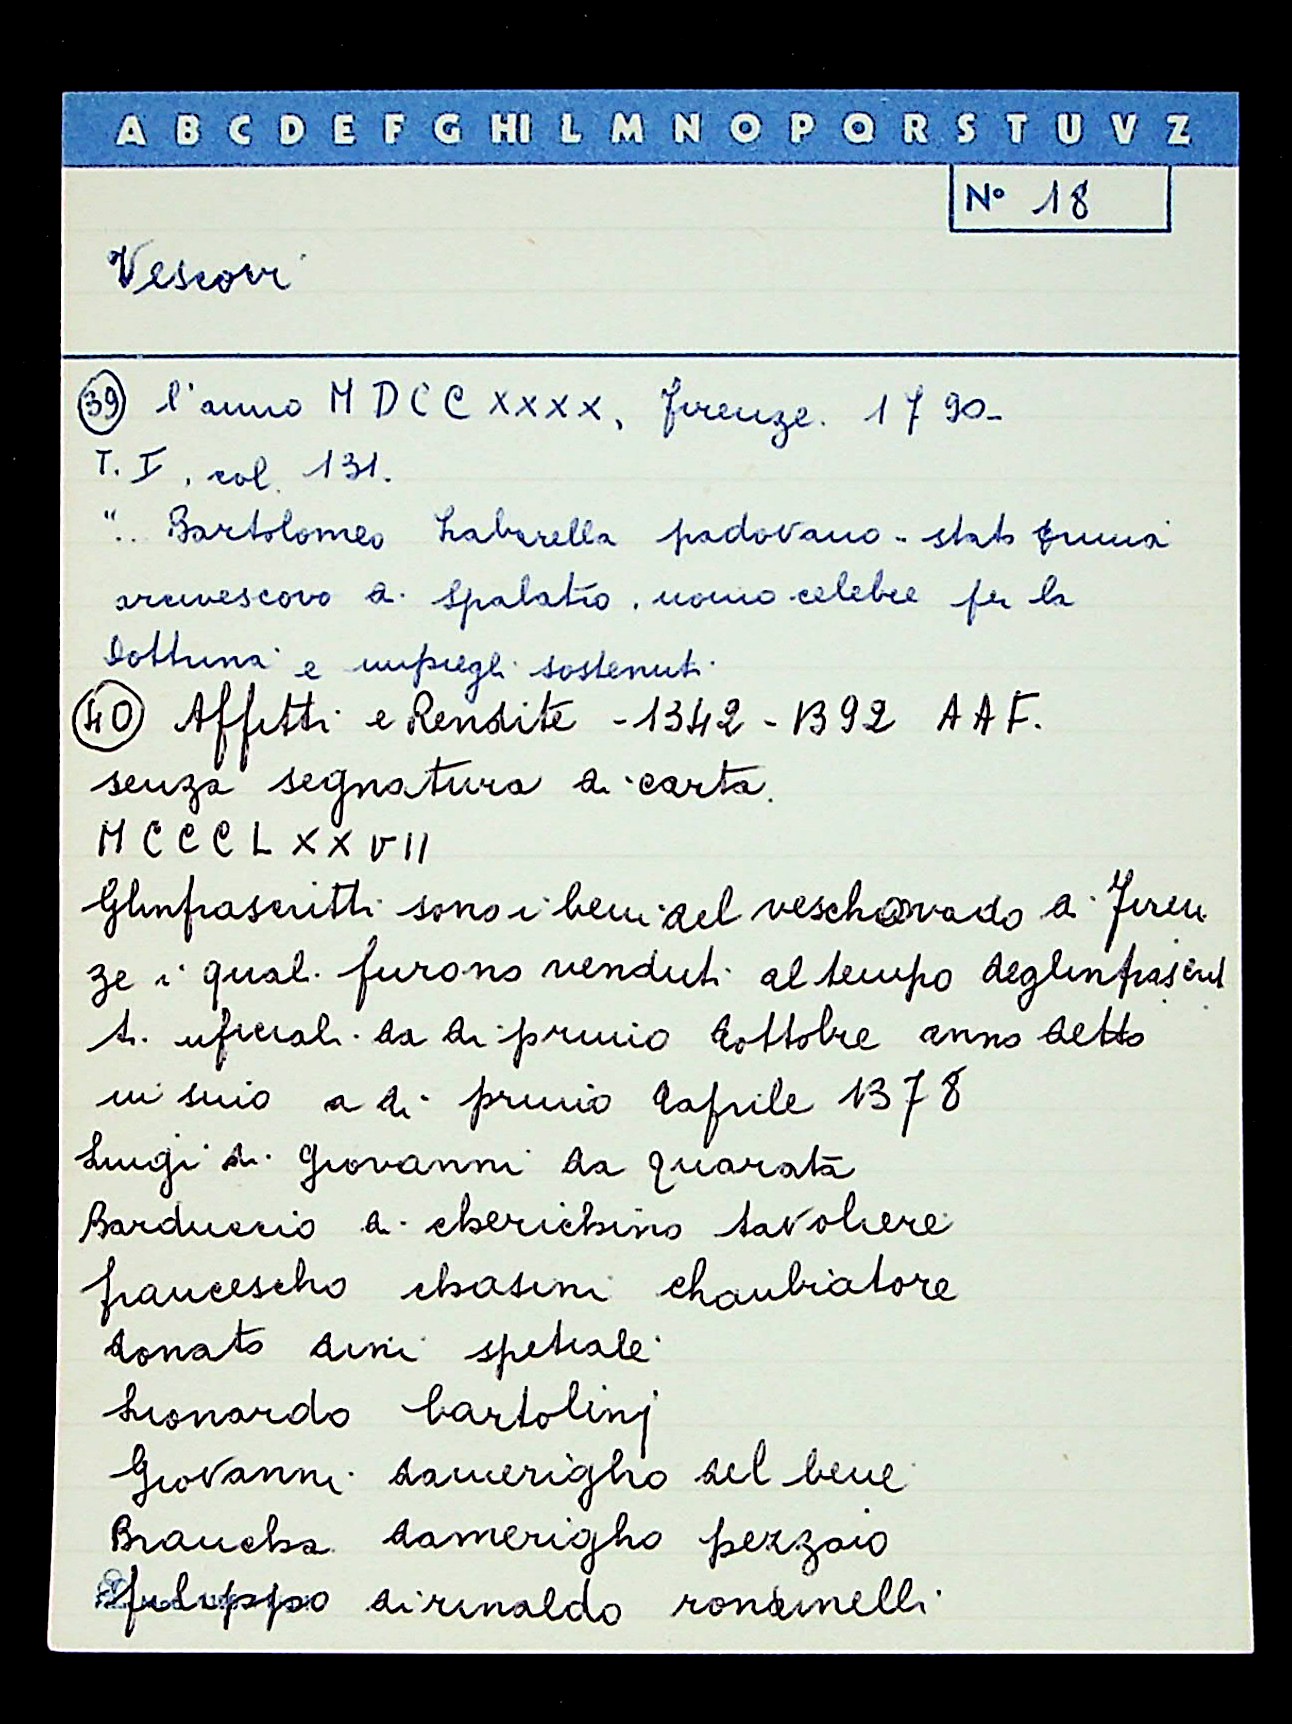 A B C D E F G HI L M N O P Q R S T U V Z
N° 18
Vescovi
39 l'anno MDCCXXXX, Firenze. 1790-
T. I, col. 131.
".. Bartolomeo Zabarella padovano - stato prima
arcivescovo di Spalatro, uomo celebre per la
dottrina e impieghi sostenuti
40 Affitti e Rendite - 1342 - 1392 AAF.
senza segnatura di carta.
MCCCLXXVII
Glinfrascritti sono i beni del veschovado di Firen
ze i quali furono venduti al tempo deglinfrascrit
ti uficiali da di primo dottobre anno detto
in sino a di primo daprile 1378
Luigi di Giovanni da quarata
Barduccio di cherichino tavoliere
francescho chasini chanbiatore
donato dini spetiale
Lionardo bartolinj
Giovanni damerigho del bene
Brancha damerigho pezzaio
filippo di rinaldo rondinelli